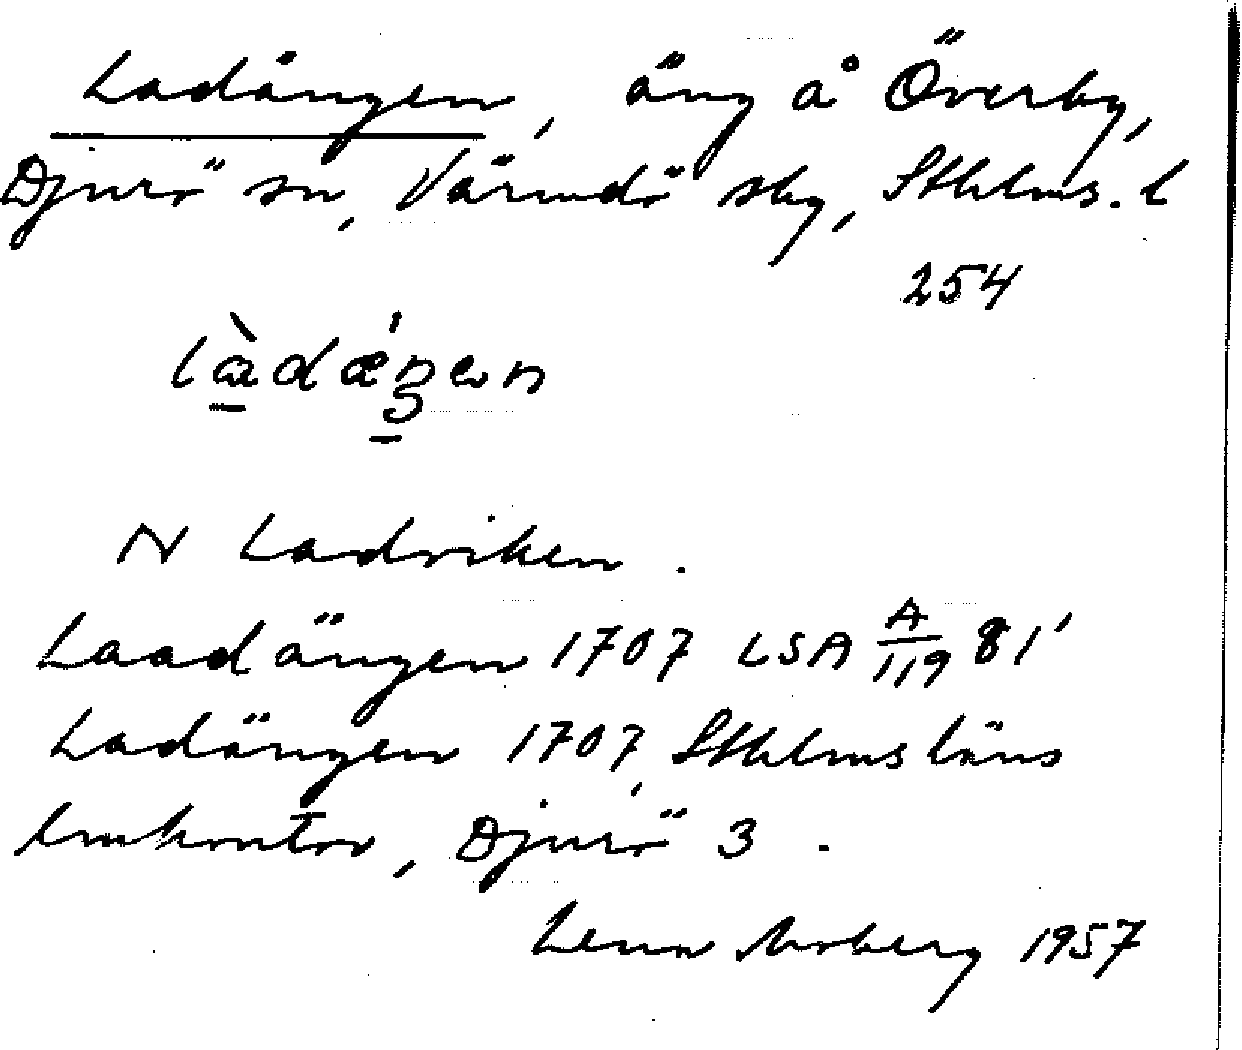 Ladängen, äng å Överby,
Djurö sn, Värmdö skg, Sthlms. l
254
làdǽŋen
N Ladviken.
Laadängen 1707 LSA A/119 81'
Ladängen 1707, Sthlms läns
lmkontor, Djurö 3.
Lena Moberg 1957